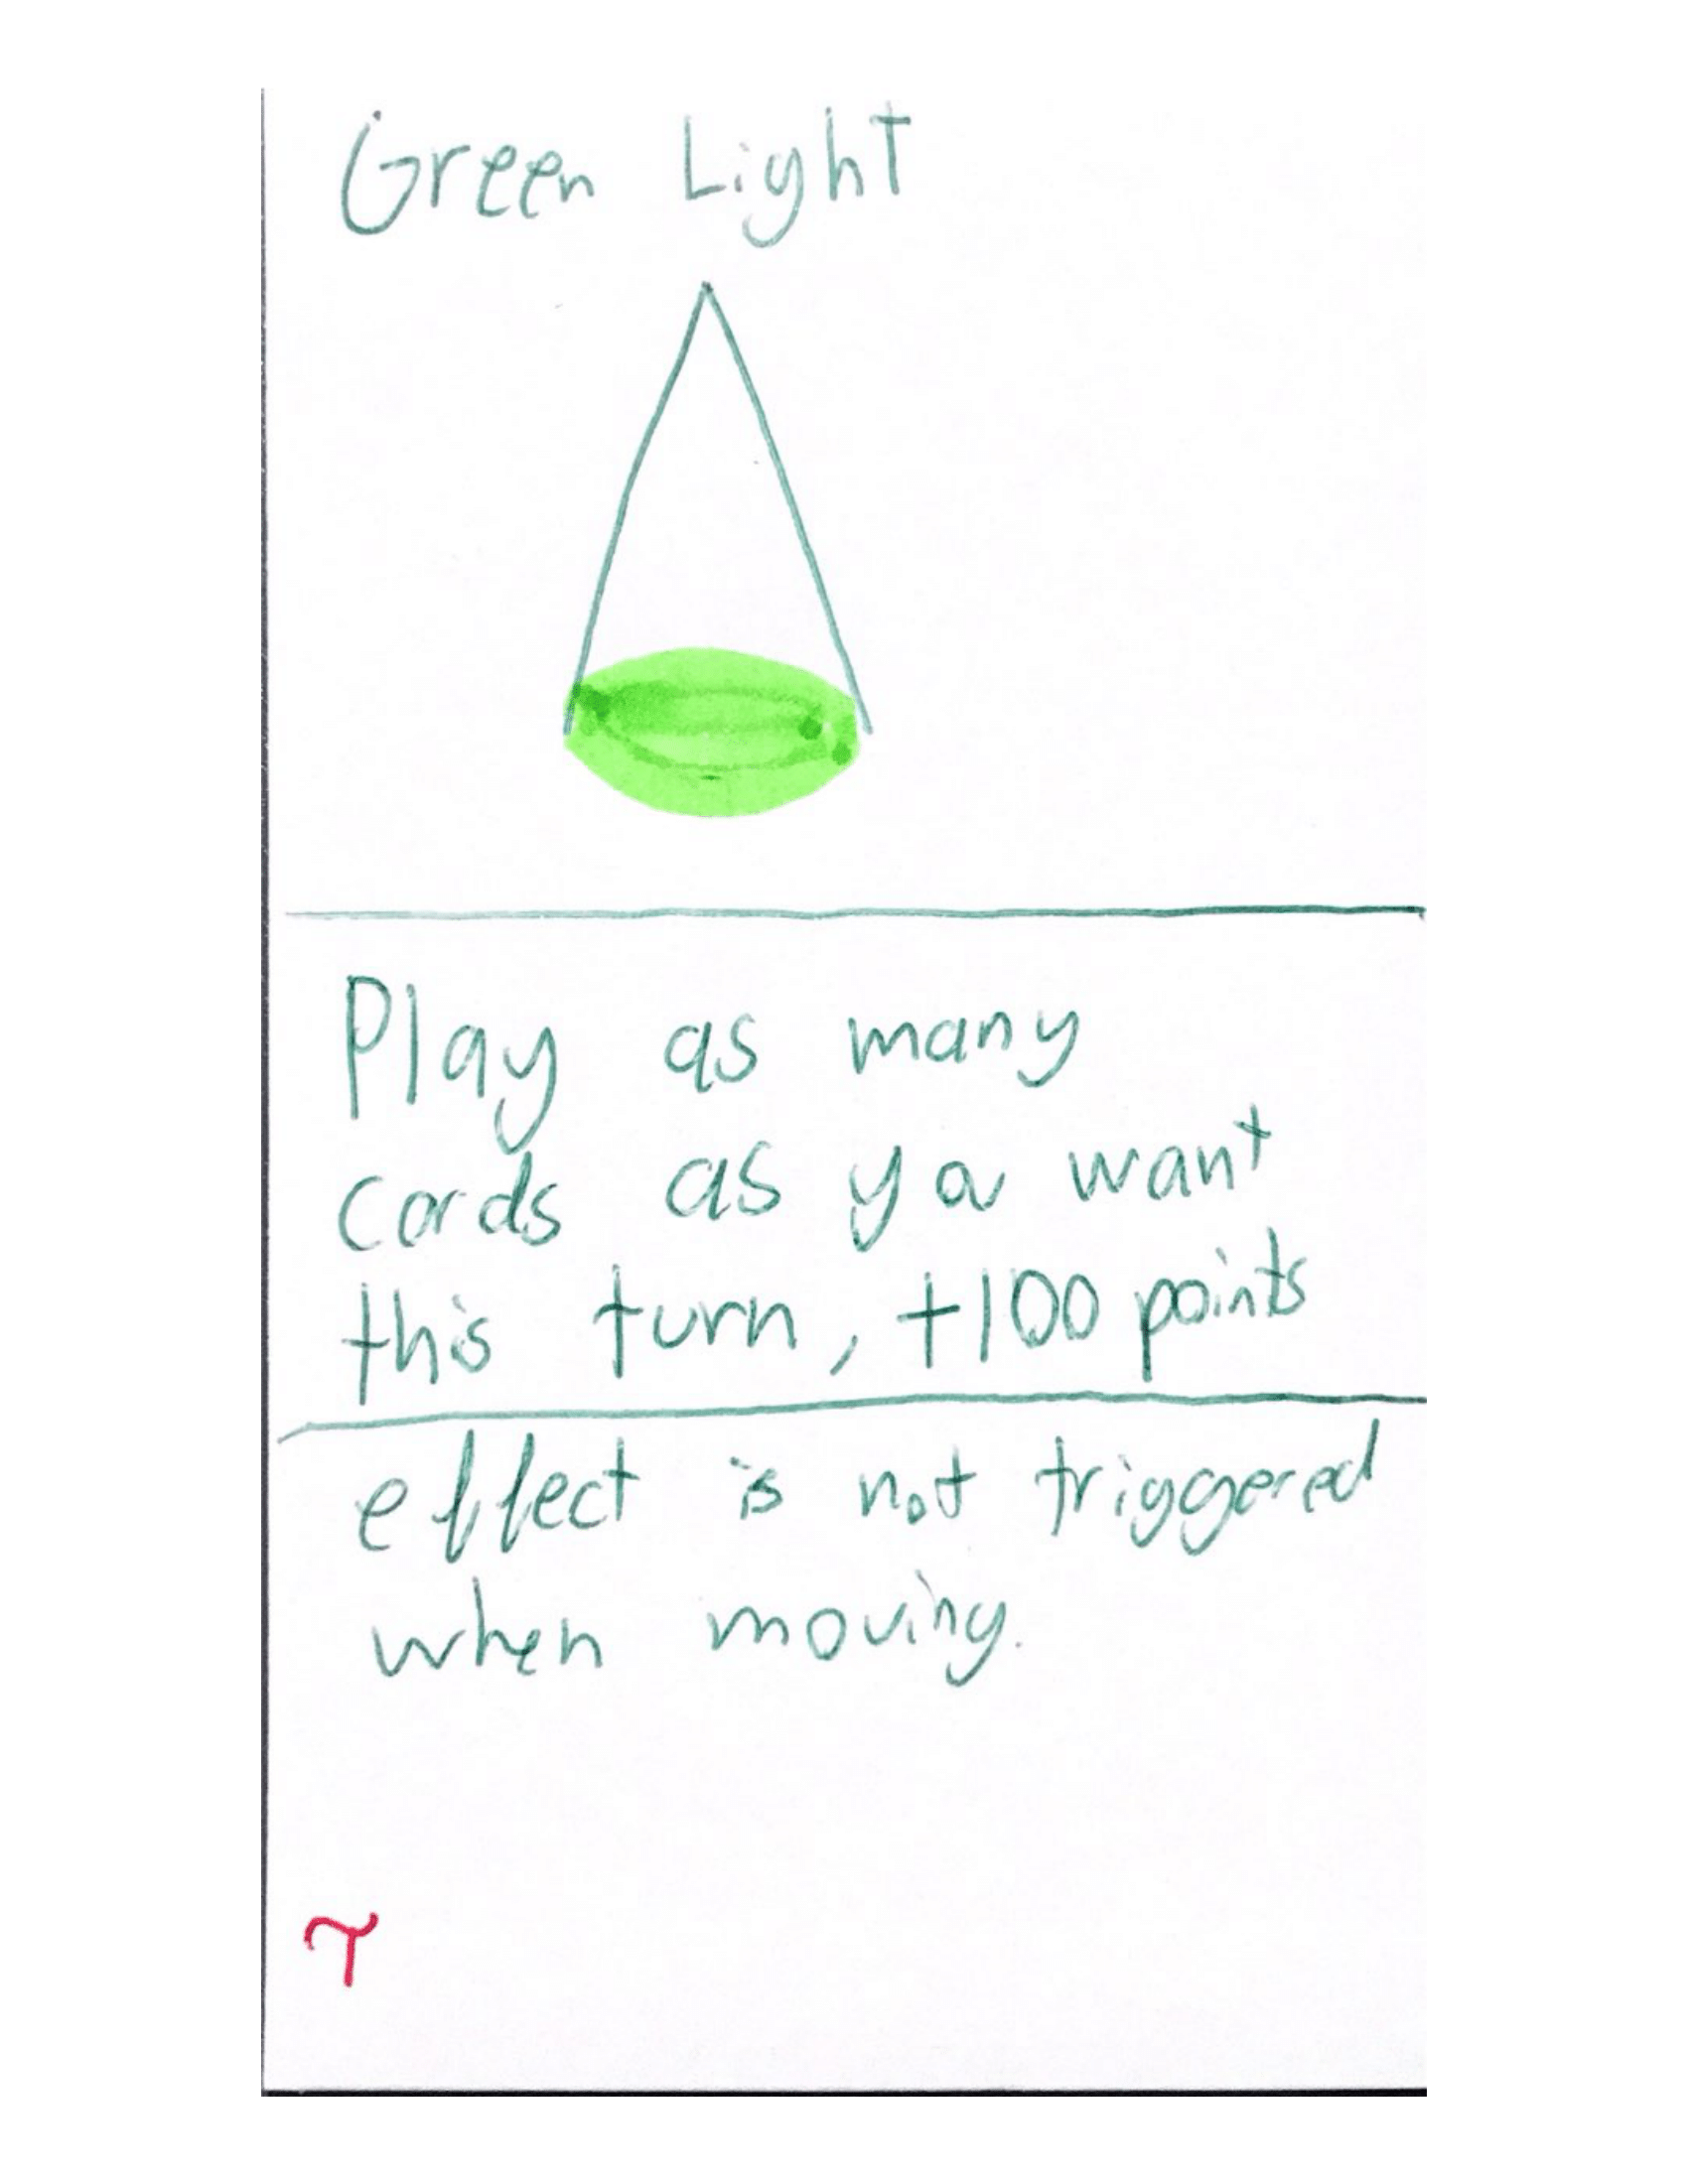 Green Light
Play as many
cards as you want
this turn, +100 points
effect is not triggered
when moving.
T